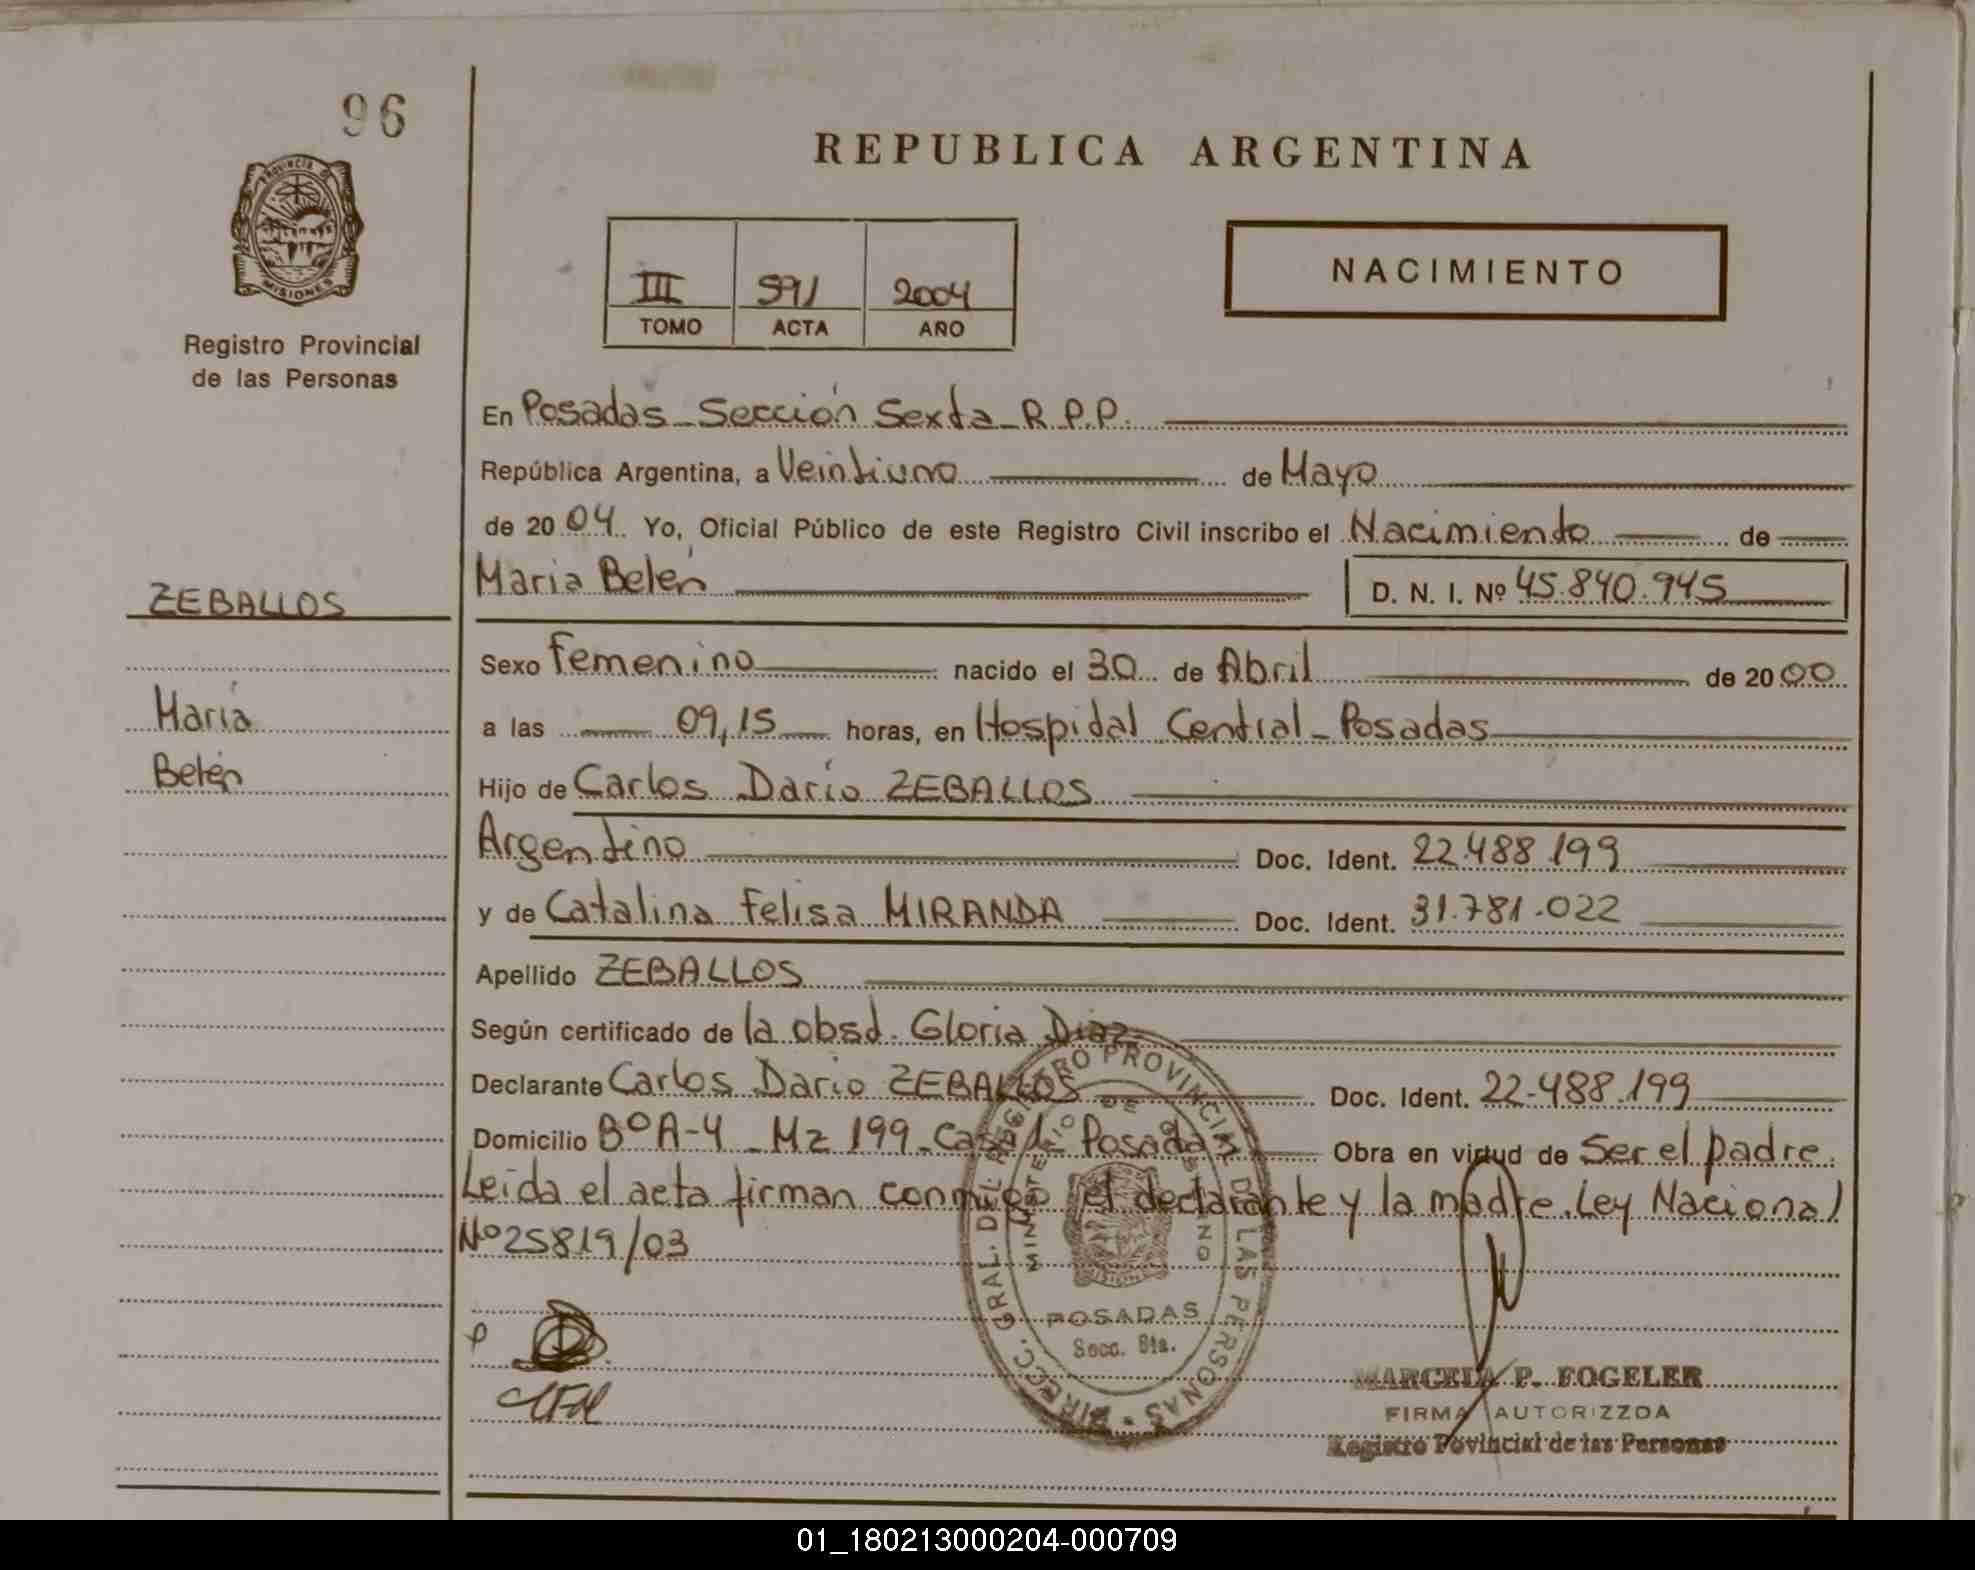 96
REPUBLICA ARGENTINA
PROVINCIA DE
MISIONES
III 591 2004
TOMO ACTA AÑO
NACIMIENTO
Registro Provincial
de las Personas
En Posadas - Sección Sexta - R.P.P.
República Argentina, a Veintiuno de Mayo
de 2004. Yo, Oficial Público de este Registro Civil inscribo el Nacimiento de
ZEBALLOS
María
Belén
María Belén D. N. I. Nº 45.840.945
Sexo Femenino nacido el 30 de Abril de 2000
a las 09,15 horas, en Hospital Central - Posadas
Hijo de Carlos Darío ZEBALLOS
Argentino Doc. Ident. 22.488.199
y de Catalina Felisa MIRANDA Doc. Ident. 31.781.022
Apellido ZEBALLOS
Según certificado de la obst. Gloria Diaz
Declarante Carlos Dario ZEBALLOS Doc. Ident. 22.488.199
Domicilio Bº A-4 - Mz 199 - Casa Posadas Obra en virtud de Ser el padre.
Leída el acta firman conmigo el declarante y la madre. Ley Nacional
Nº 25819/03
DIRECC. GRAL. DEL REGISTRO PROVINCIAL DE LAS PERSONAS
MINISTERIO DE GOBIERNO
POSADAS
Secc. 6ta.
MARCELA P. FOGELER
FIRMA AUTORIZZDA
Registro Povincial de las Personas
01_180213000204-000709